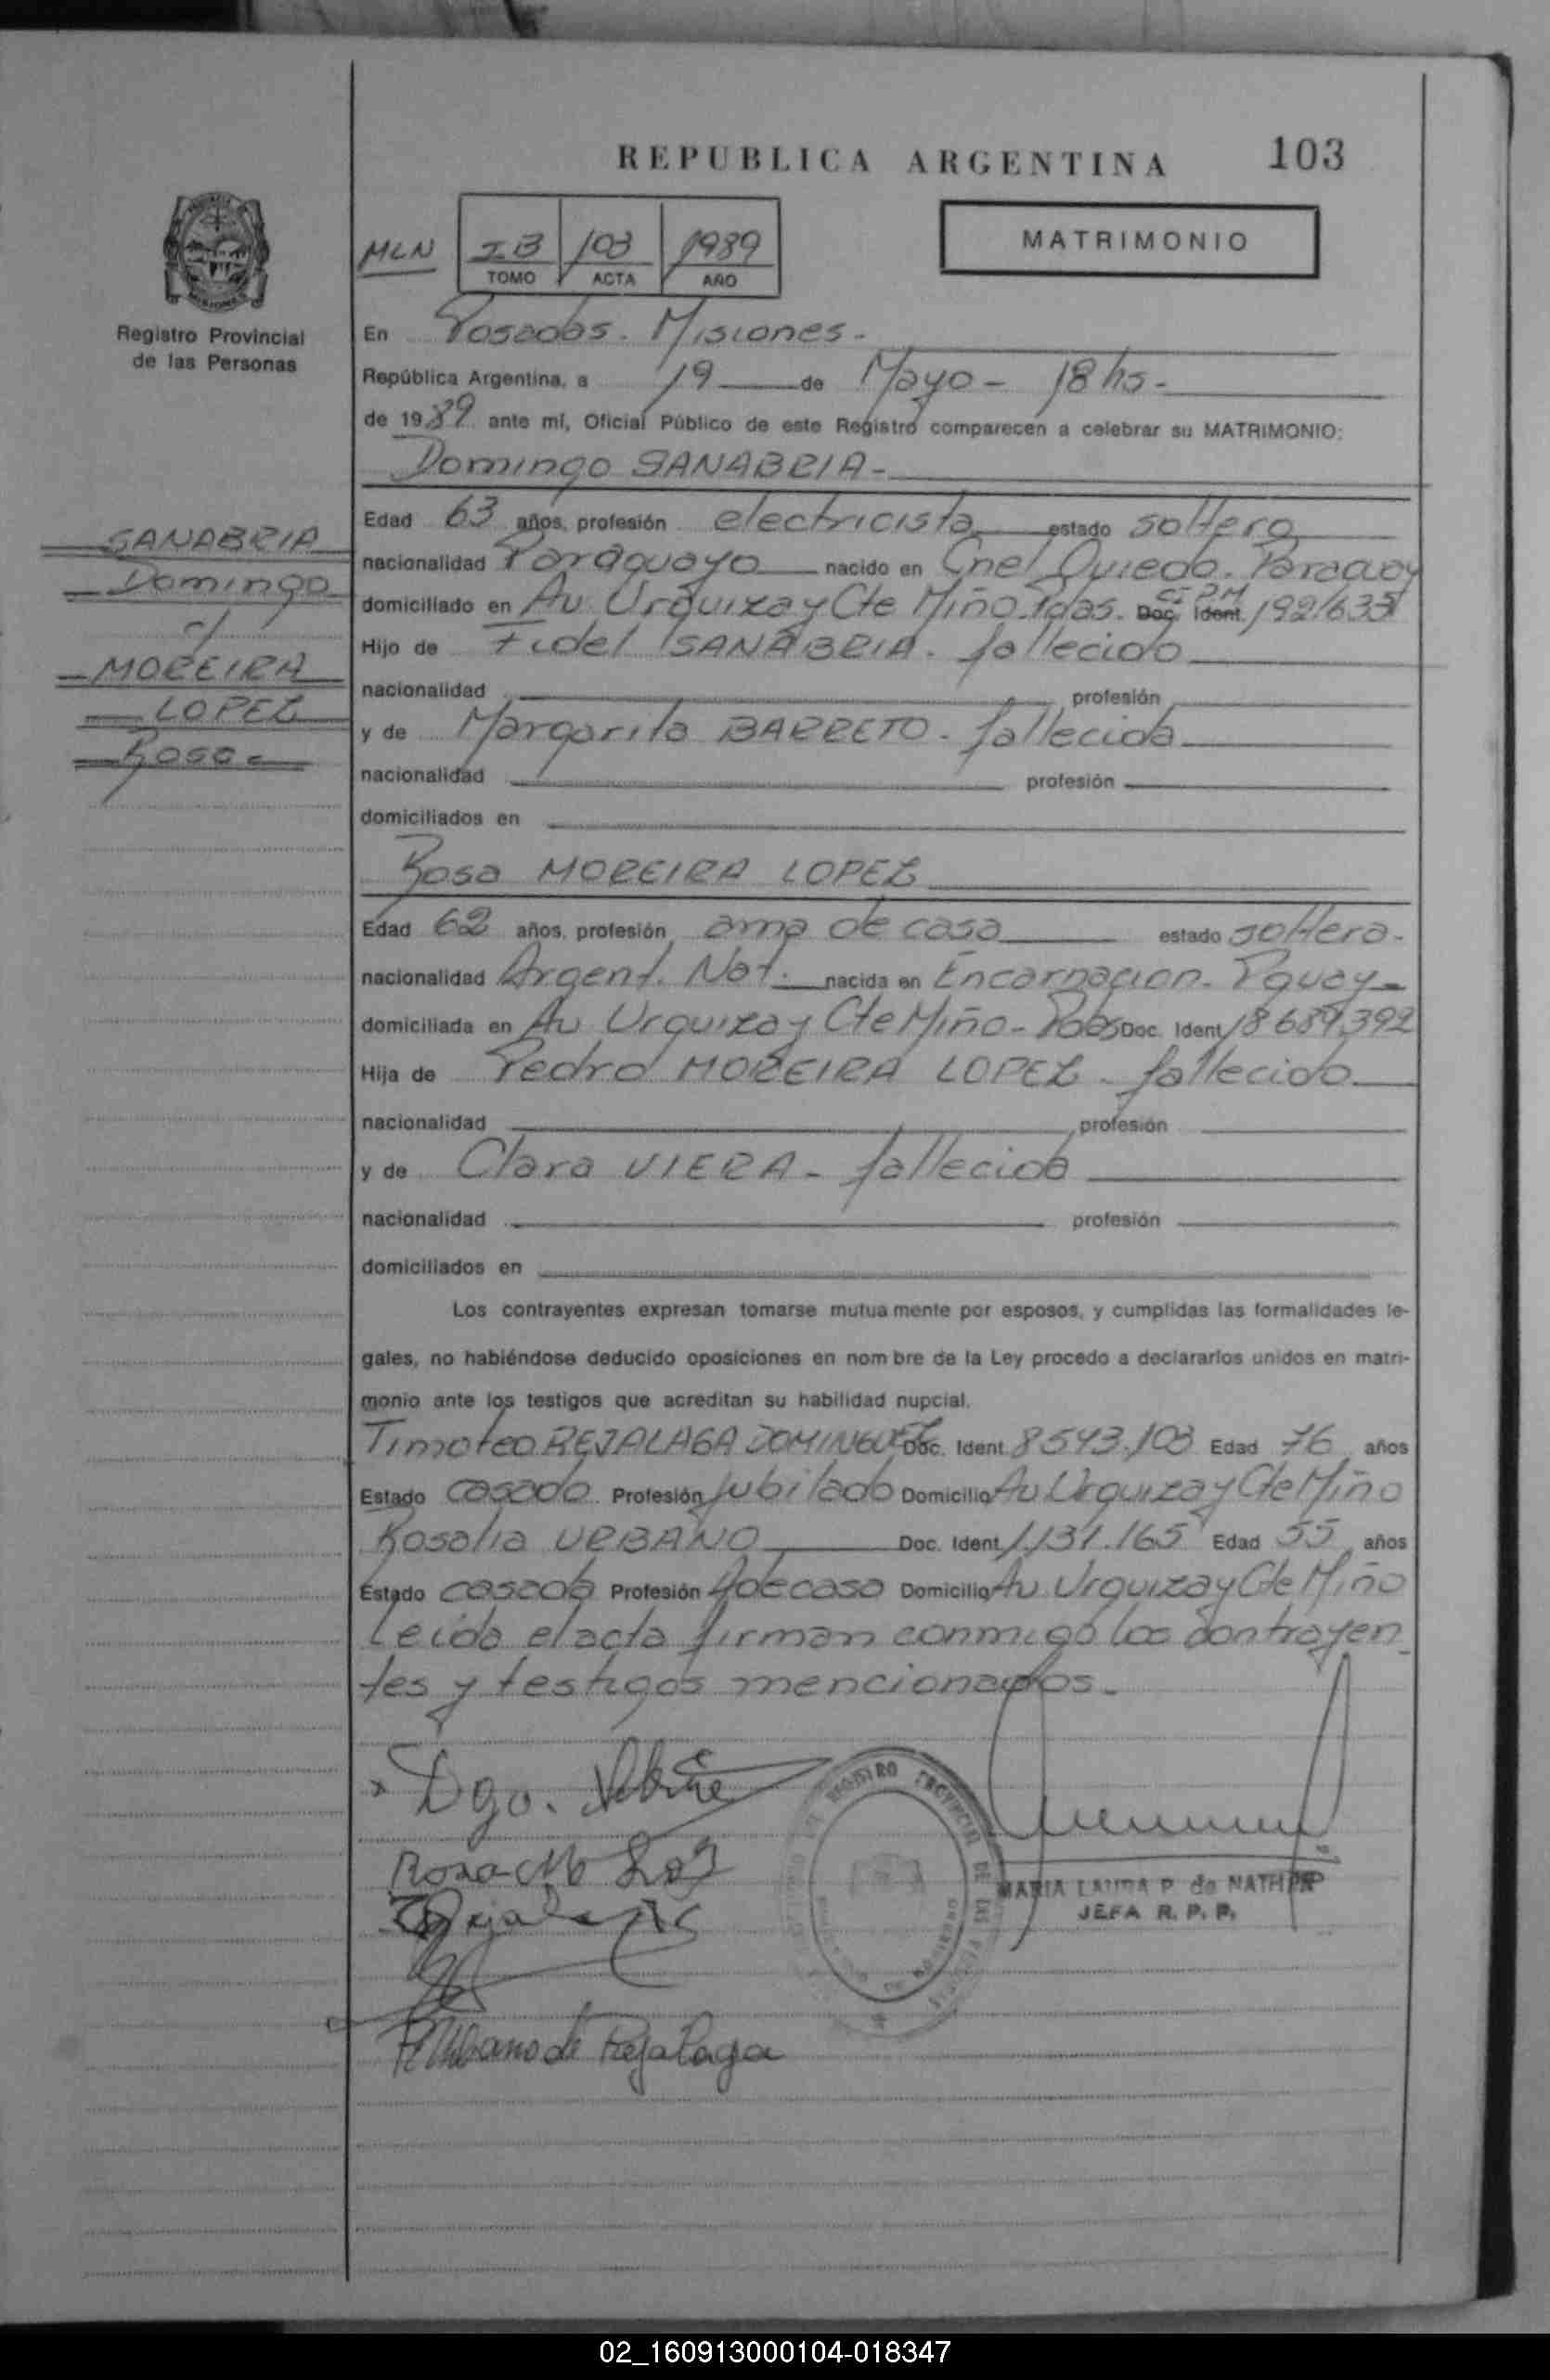 REPUBLICA ARGENTINA 103
MLN I B 103 1989
TOMO ACTA AÑO
MATRIMONIO
Registro Provincial
de las Personas
En Posadas. Misiones.
República Argentina, a 19 de Mayo - 18 hs-
de 1989 ante mí, Oficial Público de este Registro comparecen a celebrar su MATRIMONIO:
Domingo SANABRIA-
SANABRIA
Domingo
c/
MOREIRA
LOPEZ
Rosa-
Edad 63 años, profesión electricista estado soltero
nacionalidad Paraguayo nacido en Cnel Oviedo. Paraguay
domiciliado en Av Urquiza y Cte Miño. Pdas. Doc. Ident. CI PM 1921635
Hijo de Fidel SANABRIA. fallecido
nacionalidad profesión
y de Margarita BARRETO. fallecida
nacionalidad profesión
domiciliados en
Rosa MOREIRA LOPEZ
Edad 62 años, profesión ama de casa estado soltera-
nacionalidad Argent. Nat. nacida en Encarnacion. Pguay-
domiciliada en Av Urquiza y Cte Miño - Pdas Doc. Ident. 18689392
Hija de Pedro MOREIRA LOPEZ - fallecido
nacionalidad profesión
y de Clara VIERA - fallecida
nacionalidad profesión
domiciliados en
Los contrayentes expresan tomarse mutua mente por esposos, y cumplidas las formalidades le-
gales, no habiéndose deducido oposiciones en nom bre de la Ley procedo a declararlos unidos en matri-
monio ante los testigos que acreditan su habilidad nupcial.
Timoteo REJALAGA DOMINGUEZ Doc. Ident. 8543.103 Edad 76 años
Estado casado Profesión Jubilado Domicilio Av Urquiza y Cte Miño
Rosalia URBANO Doc. Ident. 1.131.165 Edad 55 años
Estado casada Profesión A de casa Domicilio Av Urquiza y Cte Miño
Leida el acta firman conmigo los contrayen
tes y testigos mencionados.
Dgo.
Rosa Mo
R Urbano de Rejalaga
REGISTRO PROVINCIAL DE LAS
MARIA LAURA P. de
JEFA R. P. P.
02_160913000104-018347